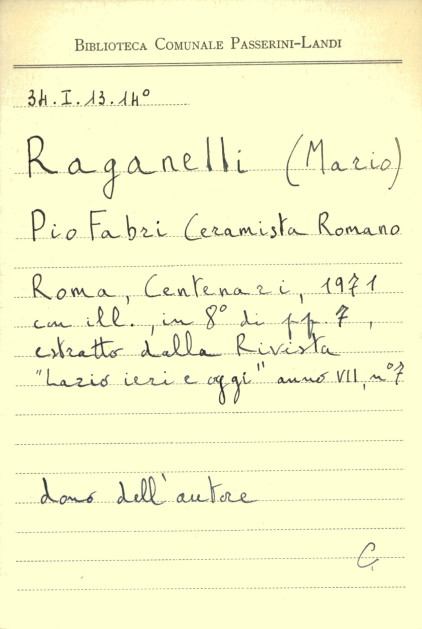 BIBLIOTECA COMUNALE PASSERINI-LANDI
34.I.13.14°
Raganelli (Mario)
Pio Fabri Ceramista Romano
Roma, Centenari, 1971
con ill., in 8° di pp 7,
estratto dalla Rivista
"Lazio ieri e oggi" anno VII, n° 7
dono dell'autore
C.